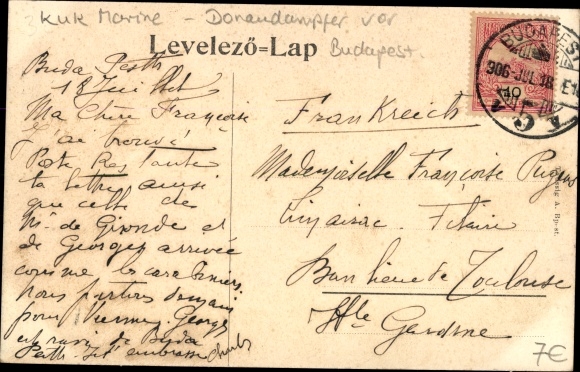 KuK Marine - Donaudampfer vor
Budapest.
Levelező=Lap
BUDAPEST
906 JUL 18
Buda Pesth
18 Juillet
Ma Chère Françoise
J'ai trouvé
Poste Restante
ta lettre ainsi
que celle de
de Gironde et
de Georges arrivée
comme
nous partons demain
pour Vienne. Georges
est ravi de Buda
Pesth. Je t'embrasse
FranKreich
Mademoiselle Françoise
Banlieue de Toulouse
Hte Garonne
7€